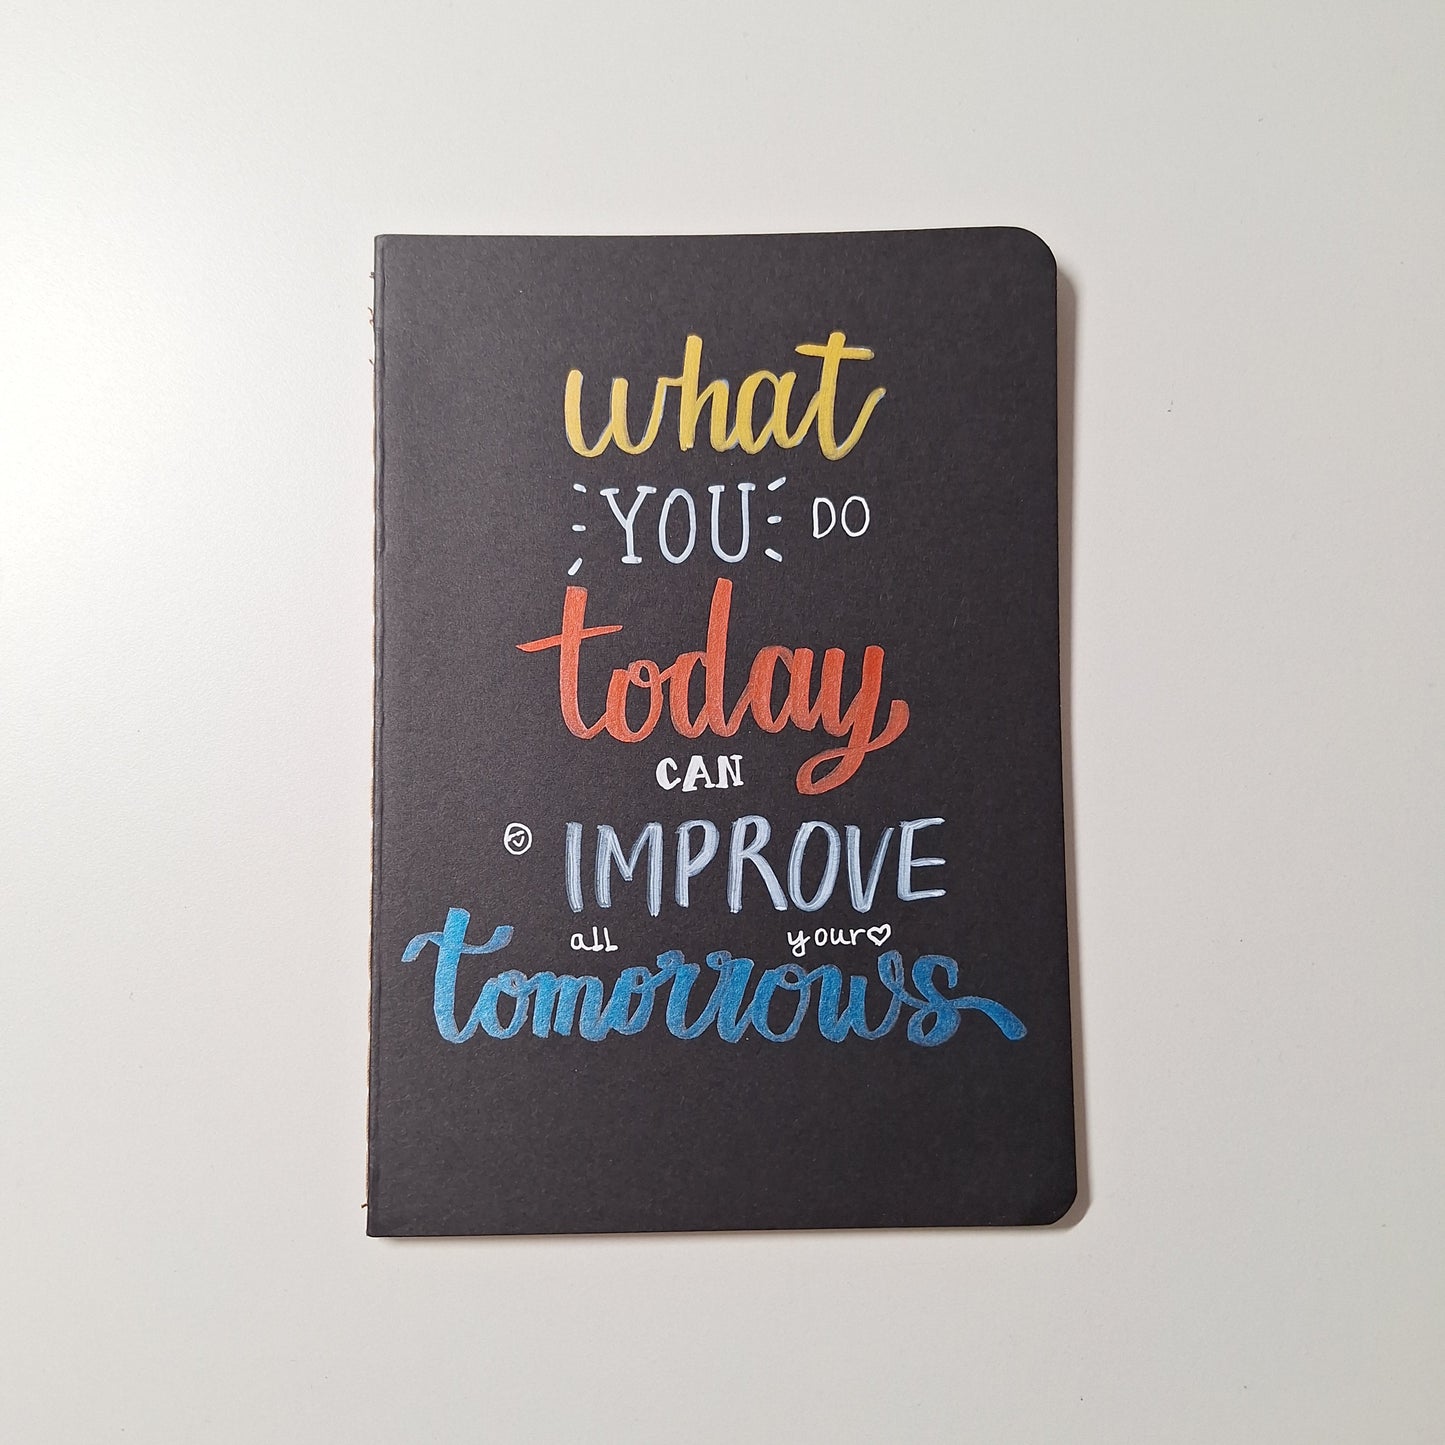 what
YOU DO
today
CAN
IMPROVE
all your
tomorrows